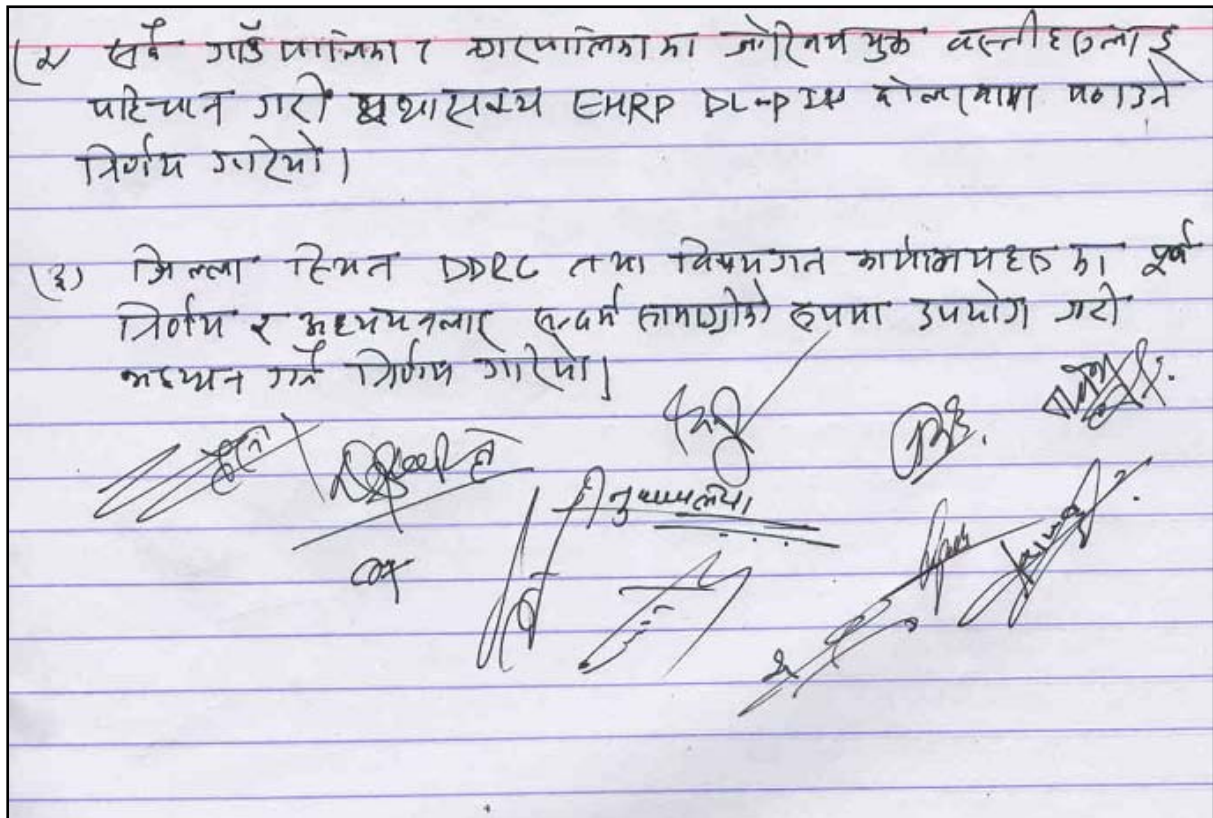 (२) सबै गाउँपालिका र नगरपालिकाका जोखिमयुक्त वस्तीहरुलाई
पहिचान गरी यथासक्य EHRP DL-PIU दोलखामा पठाउने
निर्णय गरियो।
(३) जिल्ला स्थित DDRC तथा विषयगत कार्यालयहरुका पूर्व
निर्णय र अध्ययनलाई सन्दर्भ सामाग्रीको रुपमा उपयोग गरी
अध्ययन गर्ने निर्णय गरियो।